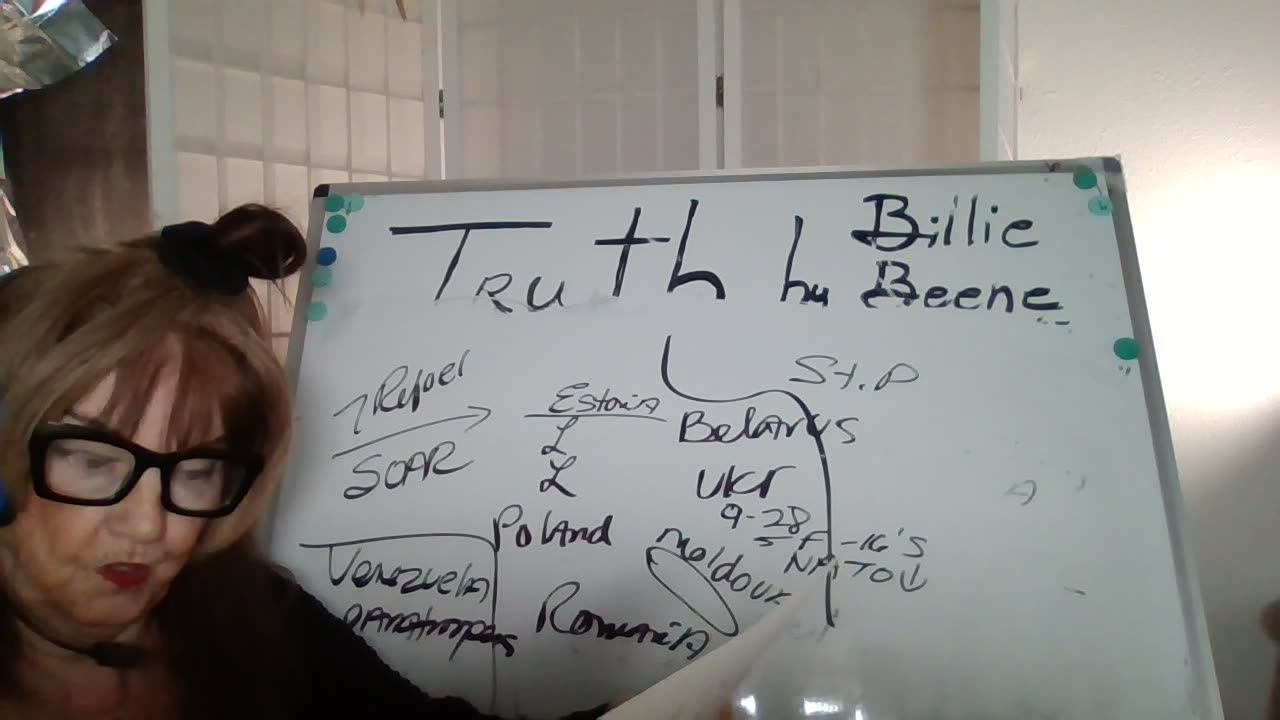 Truth by Billie
Beene
Repoer
SOAR
Estonia
L
L
Belarus
St. P
Ukr
9-28
5 F-16's
NATO↓
Poland
Moldova
Romania
Venzuela
paratroopers